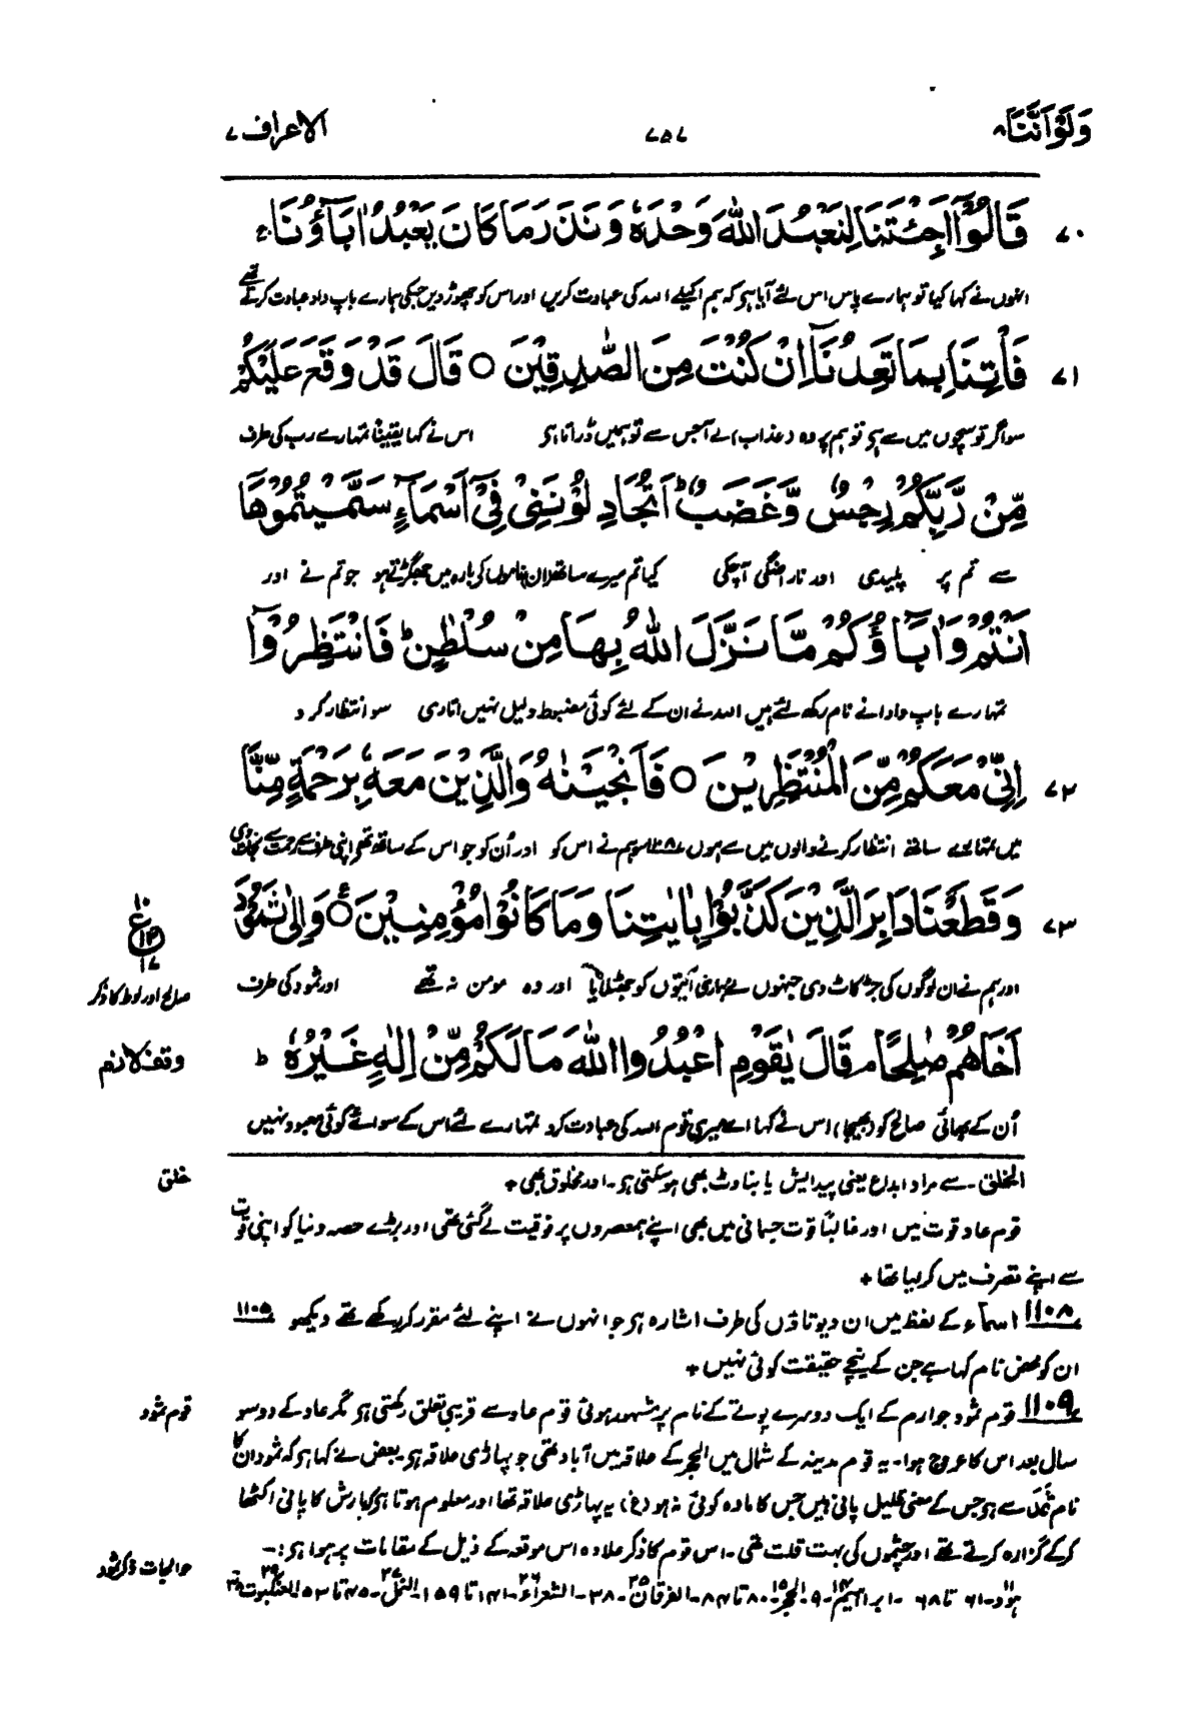 وَلَوْ اَنَّنَا ۸ ۷۵۷ الاعراف ۷
۷۰ قَالُوْٓا اَجِئْتَنَا لِنَعْبُدَ اللّٰهَ وَحْدَهٗ وَنَذَرَ مَا كَانَ يَعْبُدُ اٰبَآؤُنَا ۚ
انہوں نے کہا کیا تو ہمارے پاس اس لئے آیا ہو کہ ہم اکیلے اللہ کی عبادت کریں اور اس کو چھوڑ دیں جسکی ہمارے باپ دادا عبادت کرتے تھے
۷۱ فَاْتِنَا بِمَا تَعِدُنَآ اِنْ كُنْتَ مِنَ الصّٰدِقِيْنَ ○ قَالَ قَدْ وَقَعَ عَلَيْكُمْ
سو اگر تو سچوں میں سے ہو تو ہم پر وہ (عذاب) لے آ جس سے تو ہمیں ڈراتا ہو اس نے کہا یقیناً تمہارے رب کی طرف
مِّنْ رَّبِّكُمْ رِجْسٌ وَّغَضَبٌ ؕ اَتُجَادِلُوْنَنِيْ فِيْٓ اَسْمَآءٍ سَمَّيْتُمُوْهَآ
سے تم پر پلیدی اور ناراضگی آچکی کیا تم میرے ساتھ ان ناموں کی بارہ میں جھگڑتے ہو جو تم نے اور
اَنْتُمْ وَاٰبَآؤُكُمْ مَّا نَزَّلَ اللّٰهُ بِهَا مِنْ سُلْطٰنٍ ؕ فَانْتَظِرُوْٓا
تمہارے باپ دادا نے نام رکھ لئے ہیں اللہ نے ان کے لئے کوئی مضبوط دلیل نہیں اتاری سو انتظار کرو
۷۲ اِنِّيْ مَعَكُمْ مِّنَ الْمُنْتَظِرِيْنَ ○ فَاَنْجَيْنٰهُ وَالَّذِيْنَ مَعَهٗ بِرَحْمَةٍ مِّنَّا
میں تمہارے ساتھ انتظار کرنے والوں میں سے ہوں ۱۱۰۸ سو ہم نے اس کو اور اُن کو جو اس کے ساتھ تھے اپنی طرف سے رحمت سے نجات دی
۷۳ وَقَطَعْنَا دَابِرَ الَّذِيْنَ كَذَّبُوْا بِاٰيٰتِنَا وَمَا كَانُوْا مُؤْمِنِيْنَ ○ ع وَاِلٰى ثَمُوْدَ
۱۰ ع ۱۳ ۱۷
اور ہم نے ان لوگوں کی جڑ کاٹ دی جنہوں نے ہماری آیتوں کو جھٹلایا اور وہ مومن نہ تھے اور ثمود کی طرف
صالح اور لوط کا ذکر
اَخَاهُمْ صٰلِحًا ۘ قَالَ يٰقَوْمِ اعْبُدُوا اللّٰهَ مَا لَكُمْ مِّنْ اِلٰهٍ غَيْرُهٗ ؕ
وقف لازم
اُن کے بھائی صالح کو (بھیجا) اس نے کہا اے میری قوم اللہ کی عبادت کرو تمہارے لئے اس کے سوائے کوئی معبود نہیں
الخلق۔ سے مراد ابداع یعنی پیدایش یا بناوٹ بھی ہوسکتی ہو۔ اور مخلوق بھی +
خلق
قوم عاد قوت میں اور غالباً قوت جسمانی میں بھی اپنے ہمعصروں پر فوقیت لے گئی تھی اور بڑے حصہ دنیا کو اپنی قوت
سے اپنے تصرف میں کر لیا تھا +
۱۱۰۸ اسماء کے لفظ میں ان دیوتاؤں کی طرف اشارہ ہو جو انہوں نے اپنے لئے مقرر کر رکھے تھے دیکھو ۱۱۰۵
ان کو محض نام کہا ہے جن کے نیچے حقیقت کوئی نہیں +
۱۱۰۹ قوم ثمود جو ارم کے ایک دوسرے پوتے کے نام پر مشہور ہوئی قوم عاد سے قریبی تعلق رکھتی ہو مگر عاد کے دو سو
قوم ثمود
سال بعد اس کا عروج ہوا۔ یہ قوم مدینہ کے شمال میں الحجر کے علاقہ میں آباد تھی جو پہاڑی علاقہ ہو۔ بعض نے کہا ہو کہ ثمود ان کا
نام ثَمَد سے ہو جس کے معنی قلیل پانی ہیں جس کا مادہ کوئی نہ ہو (غ) یہ پہاڑی علاقہ تھا اور معلوم ہوتا ہو کہ بارش کا پانی اکٹھا
کر کے گزارہ کرتے تھے اور چشموں کی بہت قلت تھی۔ اس قوم کا ذکر علاوہ اس موقعہ کے ذیل کے مقامات پر ہوا ہو:۔
حوالجات ذکر ثمود
ہود ۱۱۔ ۶۱ تا ۶۸ ۔ ابراہیم ۱۴۔ ۹۔ الحجر ۱۵۔ ۸۰ تا ۸۴۔ الفرقان ۲۵۔ ۳۸۔ الشعراء ۲۶۔ ۱۴۱ تا ۱۵۹۔ النمل ۲۷۔ ۴۵ تا ۵۳۔ العنکبوت ۲۹